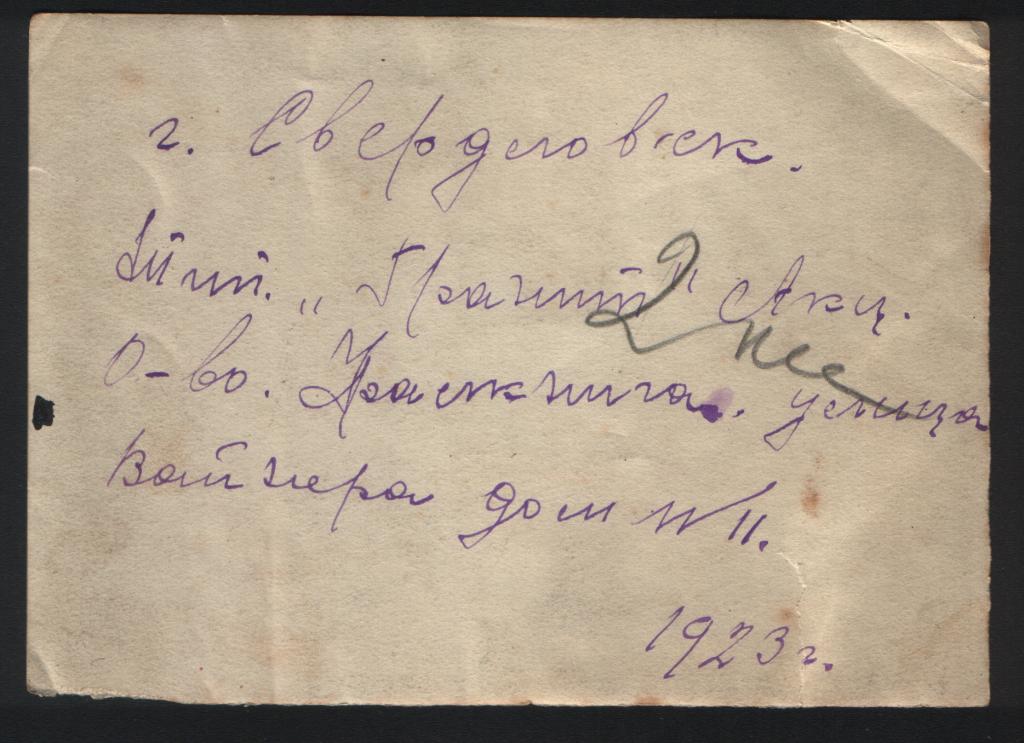 г. Свердловск.
Тип. „Гранит" Акц.
О-во. Уралкнига. улица
Вайнера дом N 11.
1923 г.